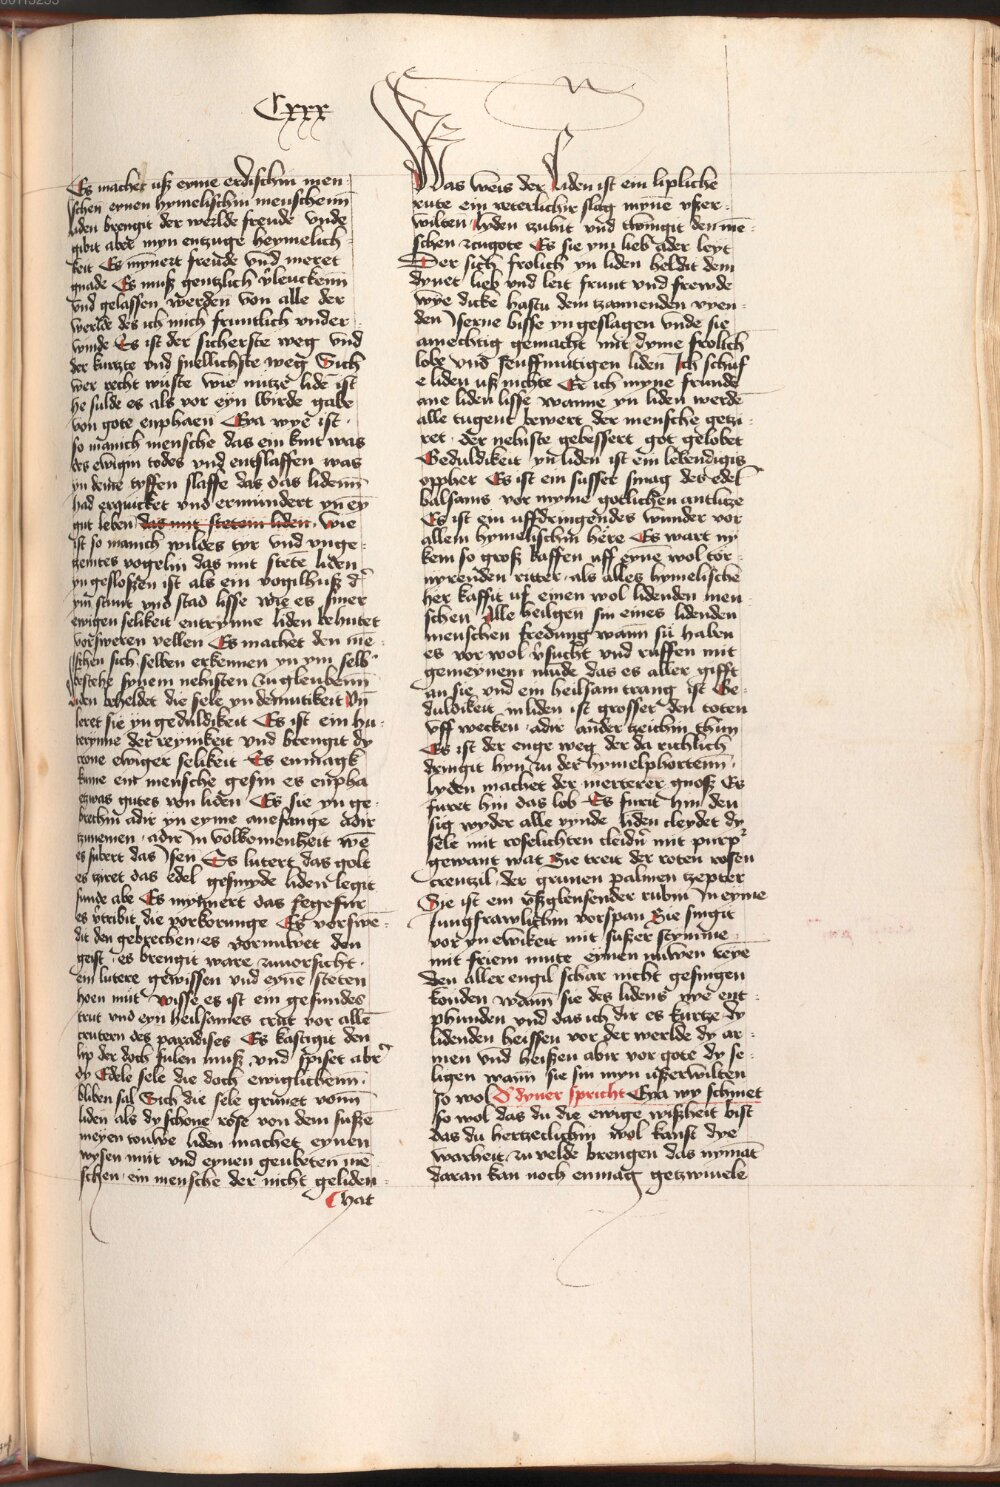 Cxxx
Es machet uß eyme erdischin men-
schen eynen hymelischin menschenn
liden brengit der werlde freude vnde
gibit aber myn entzuge heymelich-
keit Es mynert freude vnd meret
gnade Es muß gentzlich v̄leuckenn
vnd gelassen werden von alle der
werlde des ich mich fruntlich vnder-
winde Es ist der sicherste weg vnd
der kurtzte vnd snellichste weg Sich
wer recht wuste wie nutze lidē ist
he sulde es als vor eyn wirde gabe
von gote enphaen Eya wye ist
so manich mensche das ein kint was
des ewigin todes vnd entslaffen was
yn deme tyffen slaffe das das lidenn
had erquicket vnd ermundert yn ey
gut leben das mit stetem liden wie
ist so manich wildes tyr vnd vnge-
zemtes vogelin das mit stetē liden
yn geslossen ist als ein vogilhuß
ym stunt vnd stad lisse wie es siner
ewigen selikeit entrynne liden behutet
vor sweren vellen Es machet den mē-
schen sich selben erkennen yn ym selb
bestehe synem nehsten zu gleubenn
liden beheldet die sele yn demutikeit Vn̄
leret sie yn geduldikeit Es ist ein hu-
terynne der reynikeit vnd brengit dy
crone ewiger selikeit Es enmagk
kume ein mensche gesin es enpha
etzwas gutes von liden Es sie yn ge-
brechin adir yn eyme anefange adir
zunemen adir in volkomenheit wē
es subert das ysen Es lutert das golt
es ziret das edel gesmyde liden legit
sunde abe Es mynnert das fegefur
es v̄tribit die porkorunge Es vorswē-
dit den gebrechen es vornuwet den
geist es brengit ware zuuorsicht
ein lutere gewissen vnd eynē steten
hoen mut Wisse es ist ein gesundes
trut vnd eyn heilsames crut vor allē
crutern des paradises Es kastigit den
lip der doch fulen muß vnd spiset abr
dy Edele sele die doch ewiglichenn
bliben sal Sich die sele grunet vonn
liden als dy schone rose von dem sussē
meyen touwe liden machet eynen
wysen mut vnd eynen geubeten mē-
schen ein mensche der nicht geliden
hat
Was weis der liden ist ein lipliche
rute ein veterlichir slag mynē vßer-
wilten lyden zuhit vnd twingit den mē-
schen zcu gote Es sie ym lieb ader leyt
Der sich frolich yn liden heldit dem
dynet lieb vnd leit frunt vnd frewde
wye dicke hastu dem tzannenden vyen-
den yserne bisse yn geslagen vnde sie
amechtig gemacht mit dyme frolich
lobe vnd senffmutigen liden Ich schuf
e liden uß nichte Ee ich myne frunde
ane liden lisse wanne yn liden werdē
alle tugent bewert der mensche gezi-
ret der nehiste gebessert got gelobet
Geduldikeit yn liden ist ein lebendigis
oppher Es ist ein susser smag des edel
balsams vor myme gotlichen antlitze
Es ist ein uffdringendes wunder vor
allem hymelischin here Es wart ny
kem so groß kaffen uff eynē wol tor-
nyrenden ritter als alles hymelische
her kaffit uf einen wol lidenden men-
schen Alle heilgen sin eines lidenden
menschen fredung wann sü haben
es vor wol v̄sucht vnd ruffen mit
gemeynem mūde das es aller gifft
an sie vnd ein heilsam trang ist Ge-
duldikeit in liden ist grosser den toten
vff wecken adir ander tzeichin thun
Es ist der enge weg der da richlich
dringit hyn zu der hymelphortenn
lyden machet der merterer gnoß Es
furet hin das lob Es furit hin den
sig wyder alle vynde liden cleydet dy
sele mit roselichten cleidn̄ mit purp
gewant wat Sie treit der roten rosen
crentzil der grunen palmen tzepter
Sie ist ein vßglensender rubin In eyme
Jungfrawlichin vorspan Sie singit
vor yn ewikeit mit sußer stymme
mit friem mute eynen nuwen reye
den aller engil schar nicht gesingen
konden wann sie des lidens nye ent-
phunden vnd das ich dir es kurtze dy
lidenden heissen vor der werlde dy ar-
men vnd heißen abir vor gote dy se-
ligen wann sie sin myn ußerwilten
so wol D dyner spricht Eya wy schinet
so wol das du die ewige wißheit bist
das du hertzeclichin wol kanst dye
warheit zu velde brengen das nymāt
daran kan noch enmag getzwiuele